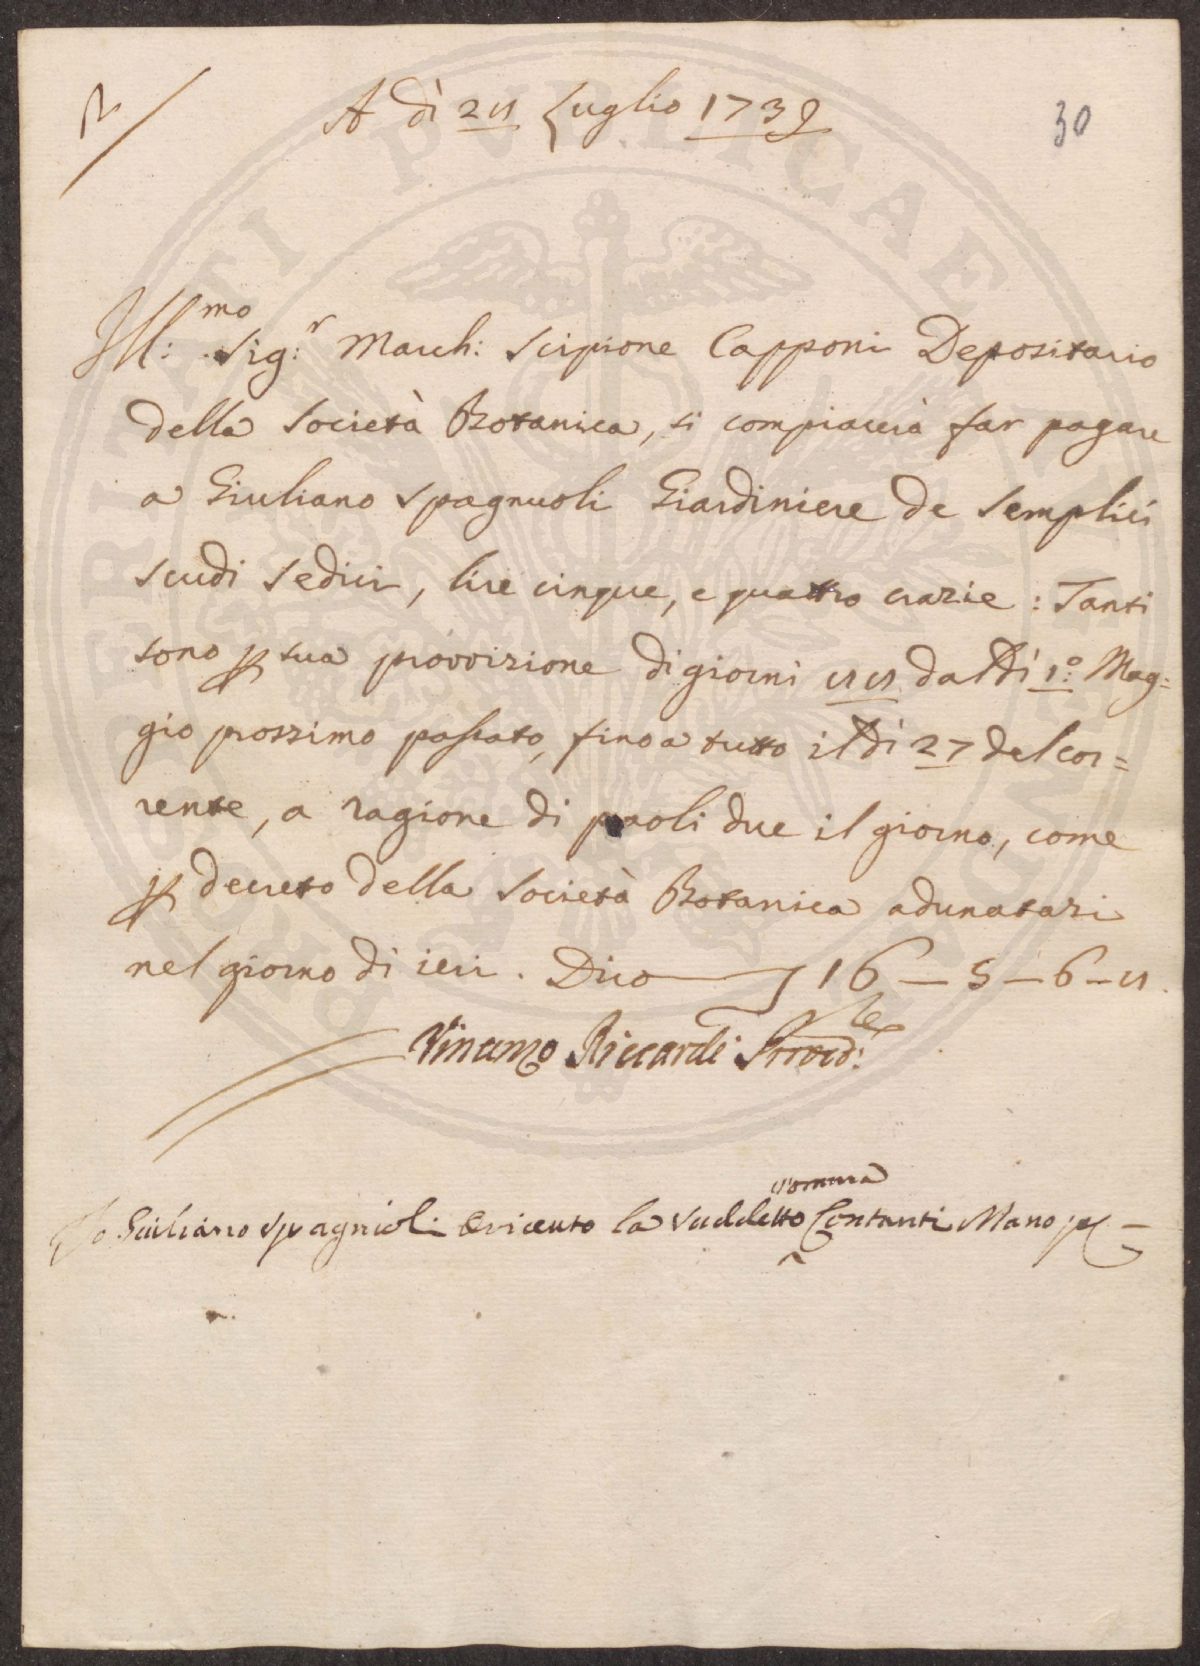 PROSPERITATI PVBLICAE AVGENDAE
A dì 28 Luglio 1739
30
Ill:mo Sig:r March: Scipione Capponi Depositario
della Società Botanica, si compiaccia far pagare
a Giuliano Spagnuoli Giardiniere de Semplici
scudi sedici, lire cinque, e quattro crazie : Tanti
sono p sua provvizione di giorni 88 dal dì 1:o Mag=
gio prossimo passato, fino a tutto il dì 27 del cor=
rente, a ragione di paoli due il giorno, come
p decreto della Società Botanica adunatasi
nel giorno di ieri. Dico — 16 — 5 — 6 — 8.
Vincenzo Riccardi Provved:re
somma
Io Giuliano Spagnioli O riceuto la suddetto ^ Contanti Mano pp —